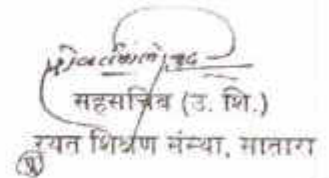 सहसचिव (उ. शि.)
रयत शिक्षण संस्था, सातारा